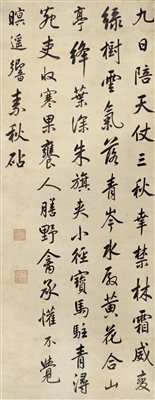 九日陪天仗三秋幸禁林霜威變
綠樹雲氣落青岑水殿黃花合山
亭絳葉深朱旗夾小徑寶馬駐青潯
苑吏收寒果饔人膳野禽承懽不覺
暝遥響素秋砧